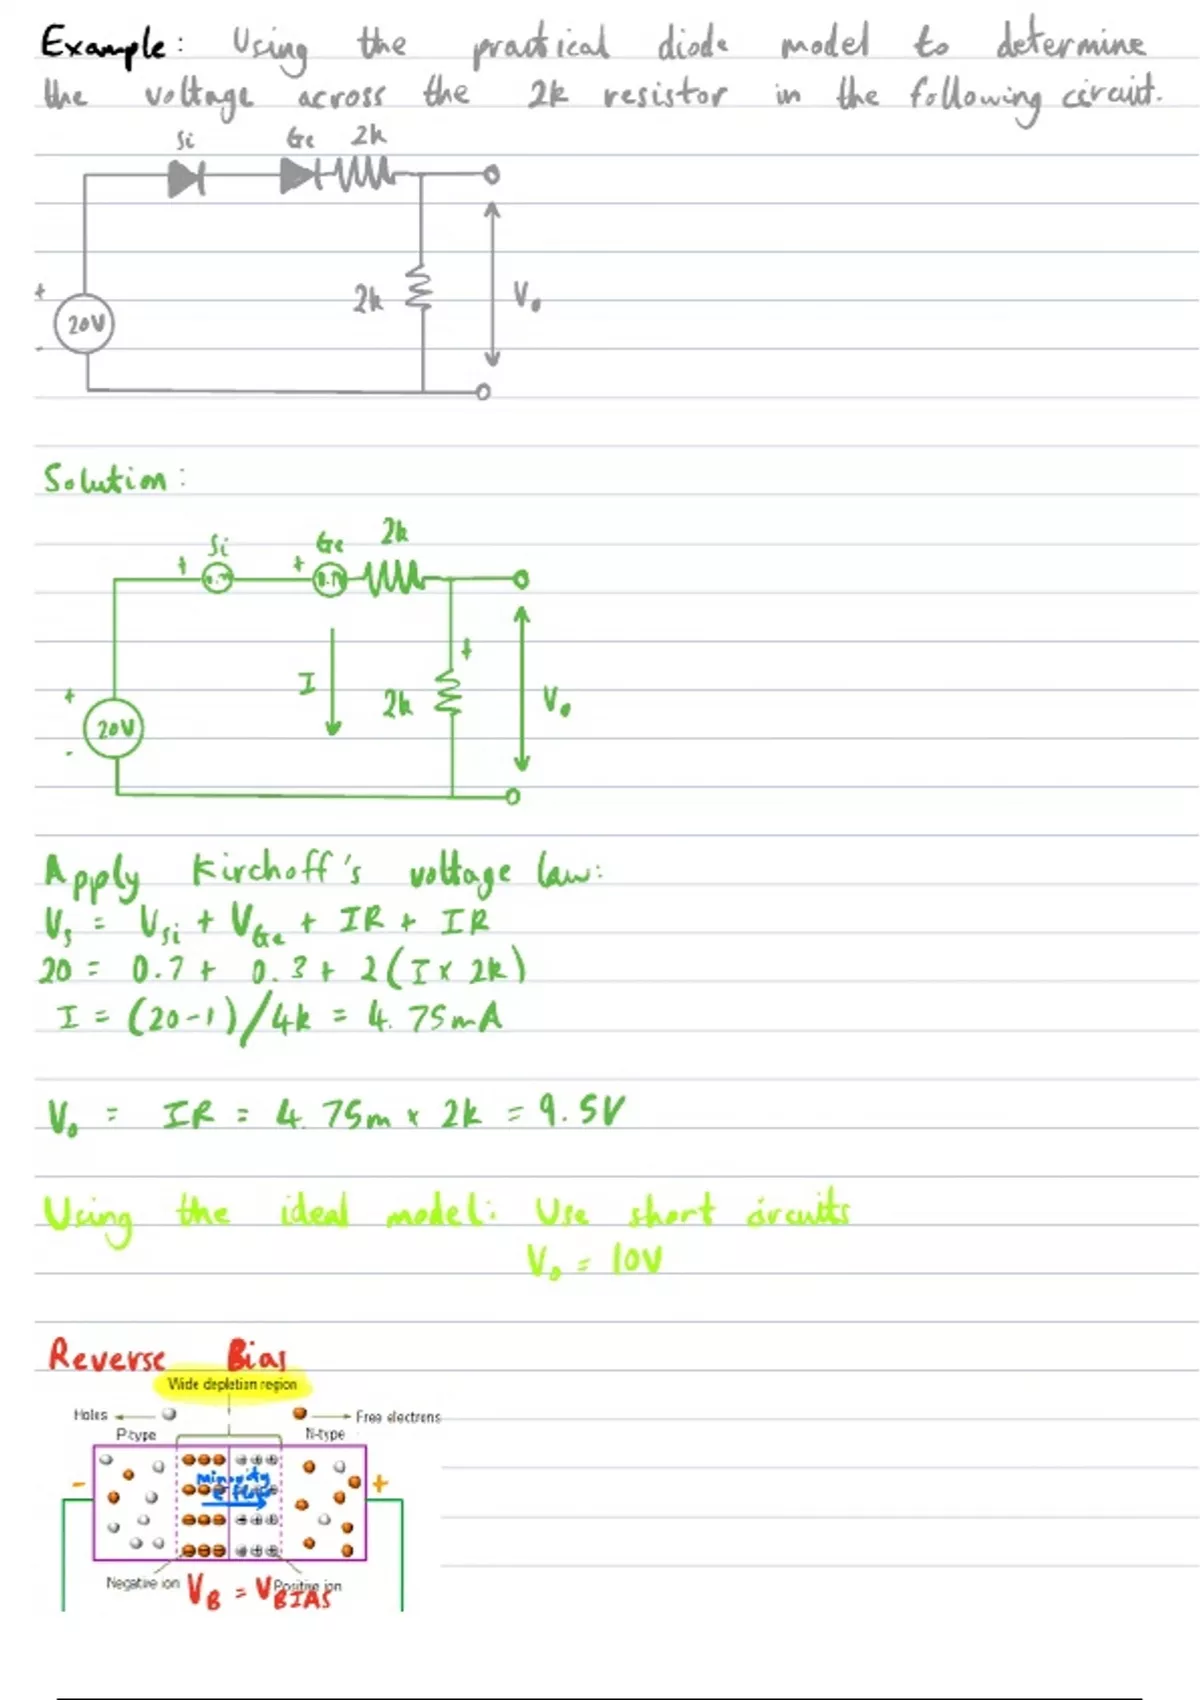 Example: Using the practical diode model to determine
the voltage across the 2k resistor in the following circuit.
Si Ge 2k
+
20V
-
2k
V₀
Solution:
Si Ge 2k
+ +
I
+
2k
V₀
+
20V
-
Apply Kirchoff's voltage law:
Vs = Vsi + VGe + IR + IR
20 = 0.7 + 0.3 + 2(I x 2k)
I = (20-1)/4k = 4.75mA
V₀ = IR = 4.75m x 2k = 9.5V
Using the ideal model: Use short circuits
V₀ = 10V
Reverse Bias
Wide depletion region
Holes Free electrons
P-type N-type
- +
minority
e flow
Negative ion Positive ion
VB = VBIAS